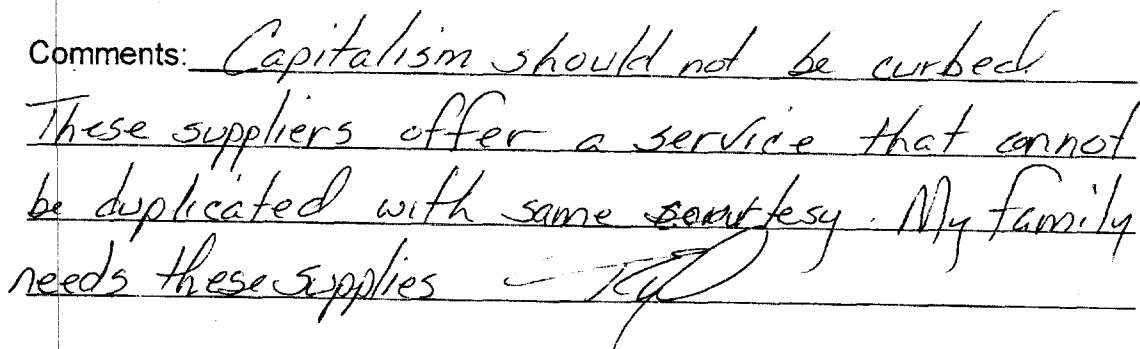 Comments: Capitalism should not be curbed.
These suppliers offer a service that cannot
be duplicated with same courtesy. My family
needs these supplies —